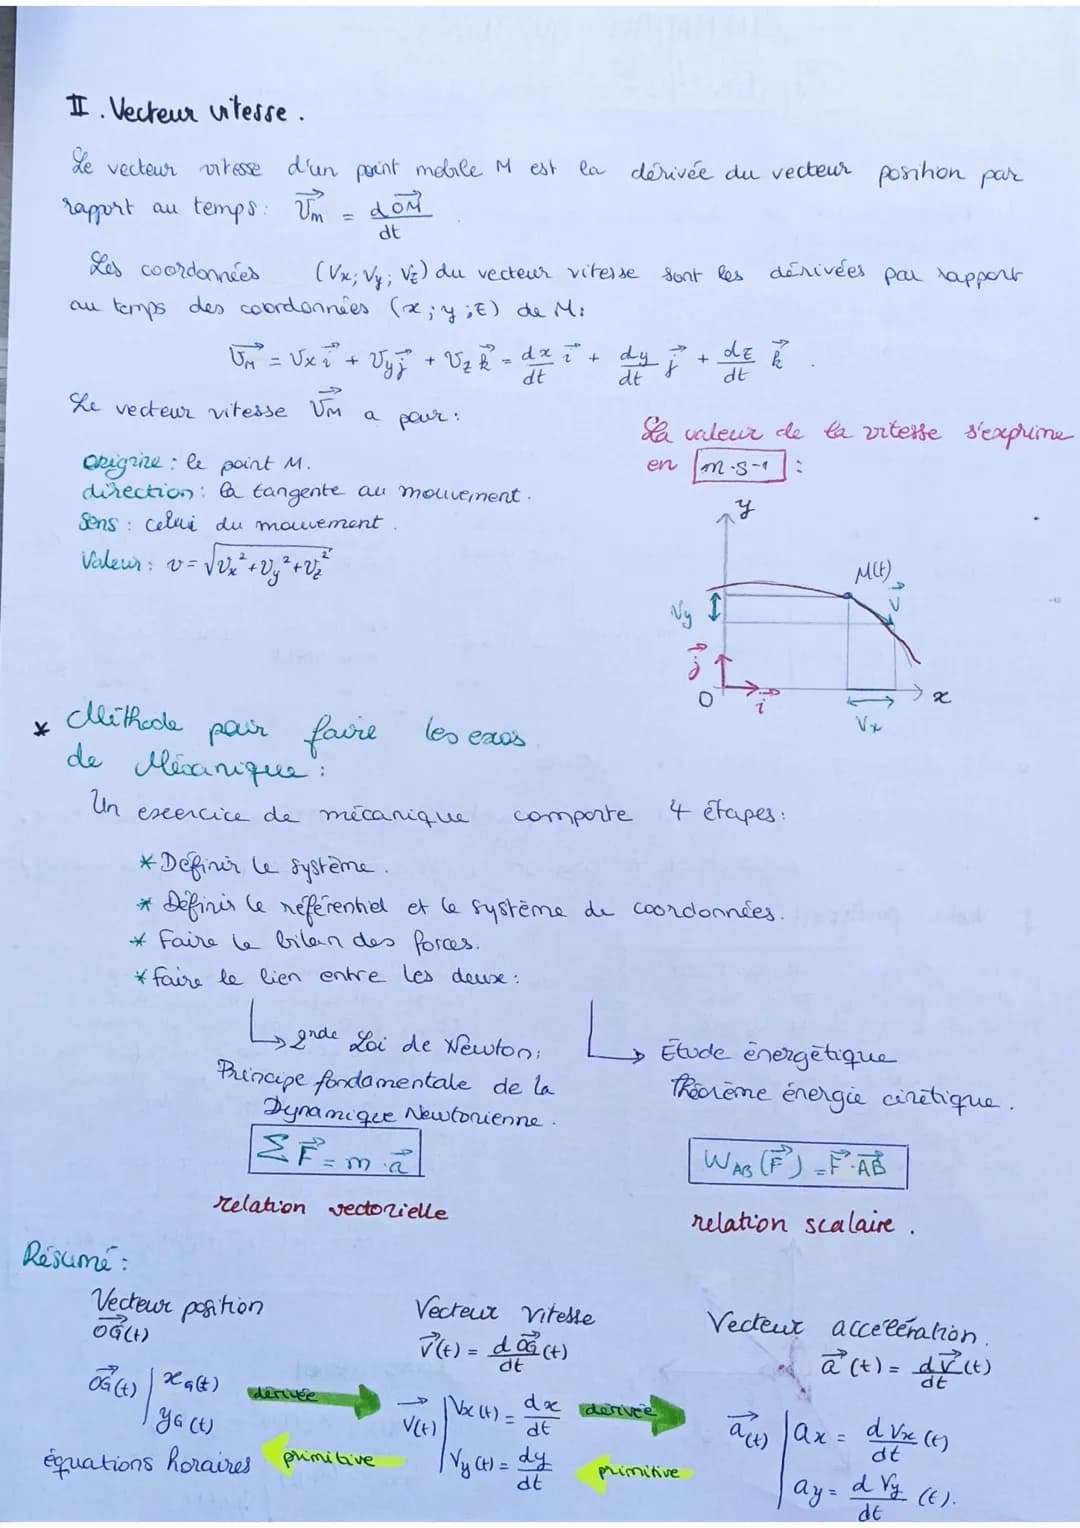 II. Vecteur vitesse.
Le vecteur vitesse d'un point mobile M est la dérivée du vecteur position par
rapport au temps: $\vec{V_m} = \frac{d\vec{OM}}{dt}$.
Les coordonnées (Vx; Vy; Vz) du vecteur vitesse sont les dérivées par rapport
au temps des coordonnées (x; y; z) de M:
$\vec{V_M} = V_x\vec{i} + V_y\vec{j} + V_z\vec{k} = \frac{dx}{dt}\vec{i} + \frac{dy}{dt}\vec{j} + \frac{dz}{dt}\vec{k}$.
Le vecteur vitesse $\vec{V_M}$ a pour:
origine: le point M.
direction: la tangente au mouvement.
Sens: celui du mouvement.
Valeur: $v = \sqrt{V_x^2 + V_y^2 + V_z^2}$
La valeur de la vitesse s'exprime
en m.s-1 :
y
M(t)
$\vec{V}$
Vy
$\vec{j}$
O
$\vec{i}$
x
Vx
* Méthode pour faire les exos
de Mécanique:
Un exercice de mécanique comporte 4 étapes:
* Définir le système.
* Définir le référentiel et le système de coordonnées.
* Faire le bilan des forces.
* faire le lien entre les deux:
↳ 2nde Loi de Newton:
Principe fondamentale de la
Dynamique Newtonienne.
$\sum \vec{F} = m.\vec{a}$
relation vectorielle
↳ Étude énergétique
Théorème énergie cinétique.
$W_{AB}(\vec{F}) = \vec{F}.\vec{AB}$
relation scalaire.
Résumé:
Vecteur position
$\vec{OG}(t)$
$\vec{OG}(t)$ | $x_G(t)$
$y_G(t)$
équations horaires
dérivée
primitive
Vecteur vitesse
$\vec{V}(t) = \frac{d\vec{OG}}{dt}(t)$
$\vec{V(t)}$ | $V_x(t) = \frac{dx}{dt}$
$V_y(t) = \frac{dy}{dt}$
dérivée
primitive
Vecteur accélération.
$\vec{a}(t) = \frac{d\vec{v}}{dt}(t)$
$\vec{a(t)}$ | $a_x = \frac{dV_x}{dt}(t)$
$a_y = \frac{dV_y}{dt}(t)$.